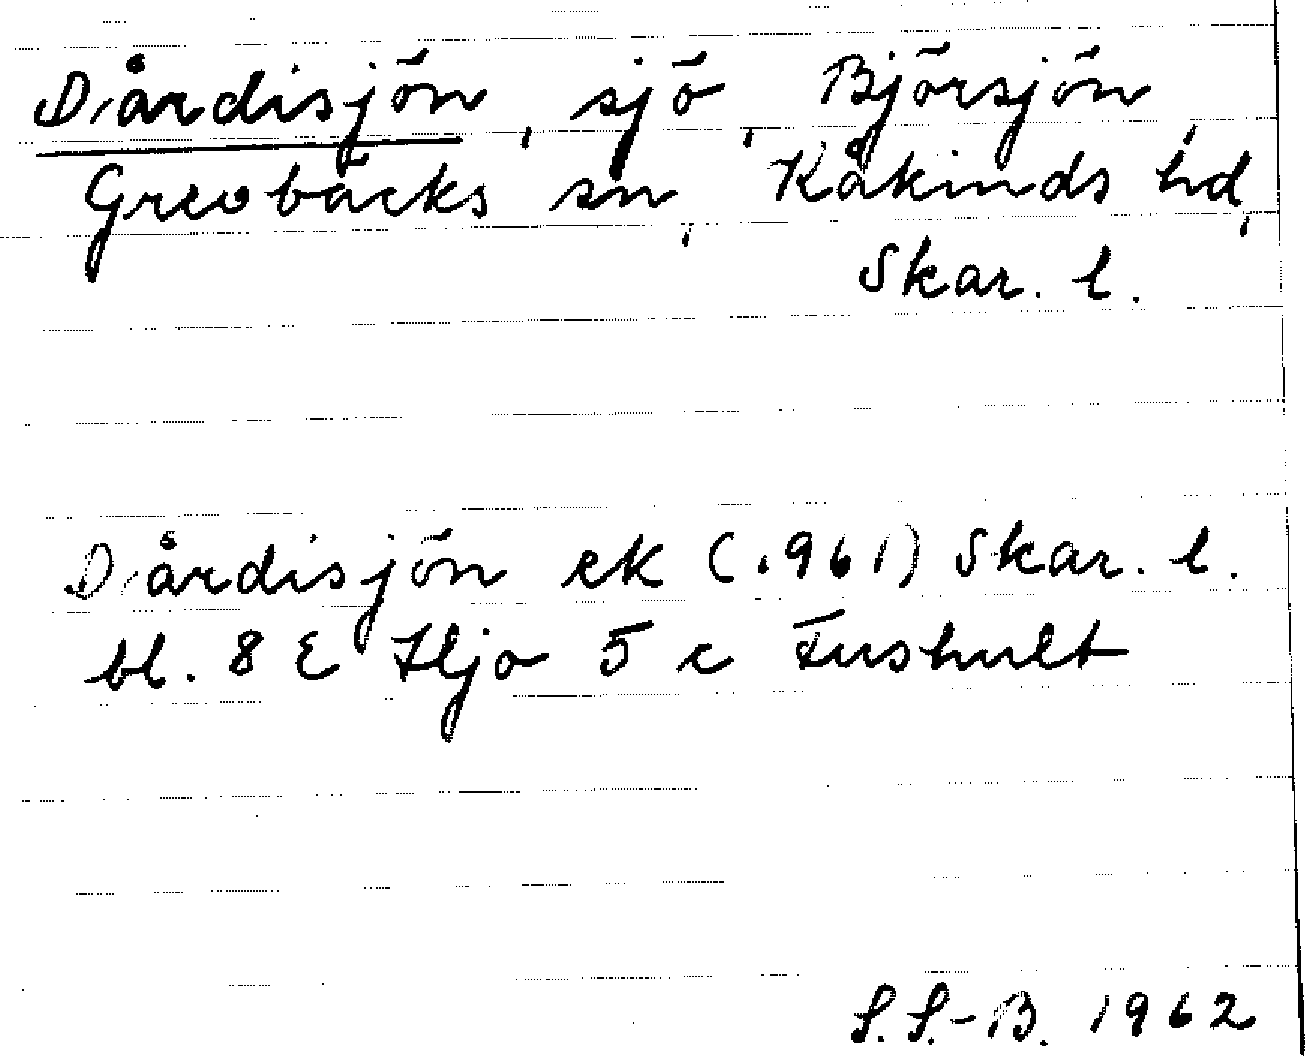 Dårdisjön, sjö, Björsjön,
Grevbäcks sn, Kåkinds hd,
Skar. l.
Dårdisjön ek (1961) Skar. l.
bl. 8 E Hjo 5 c Fushult
S.S.-B. 1962